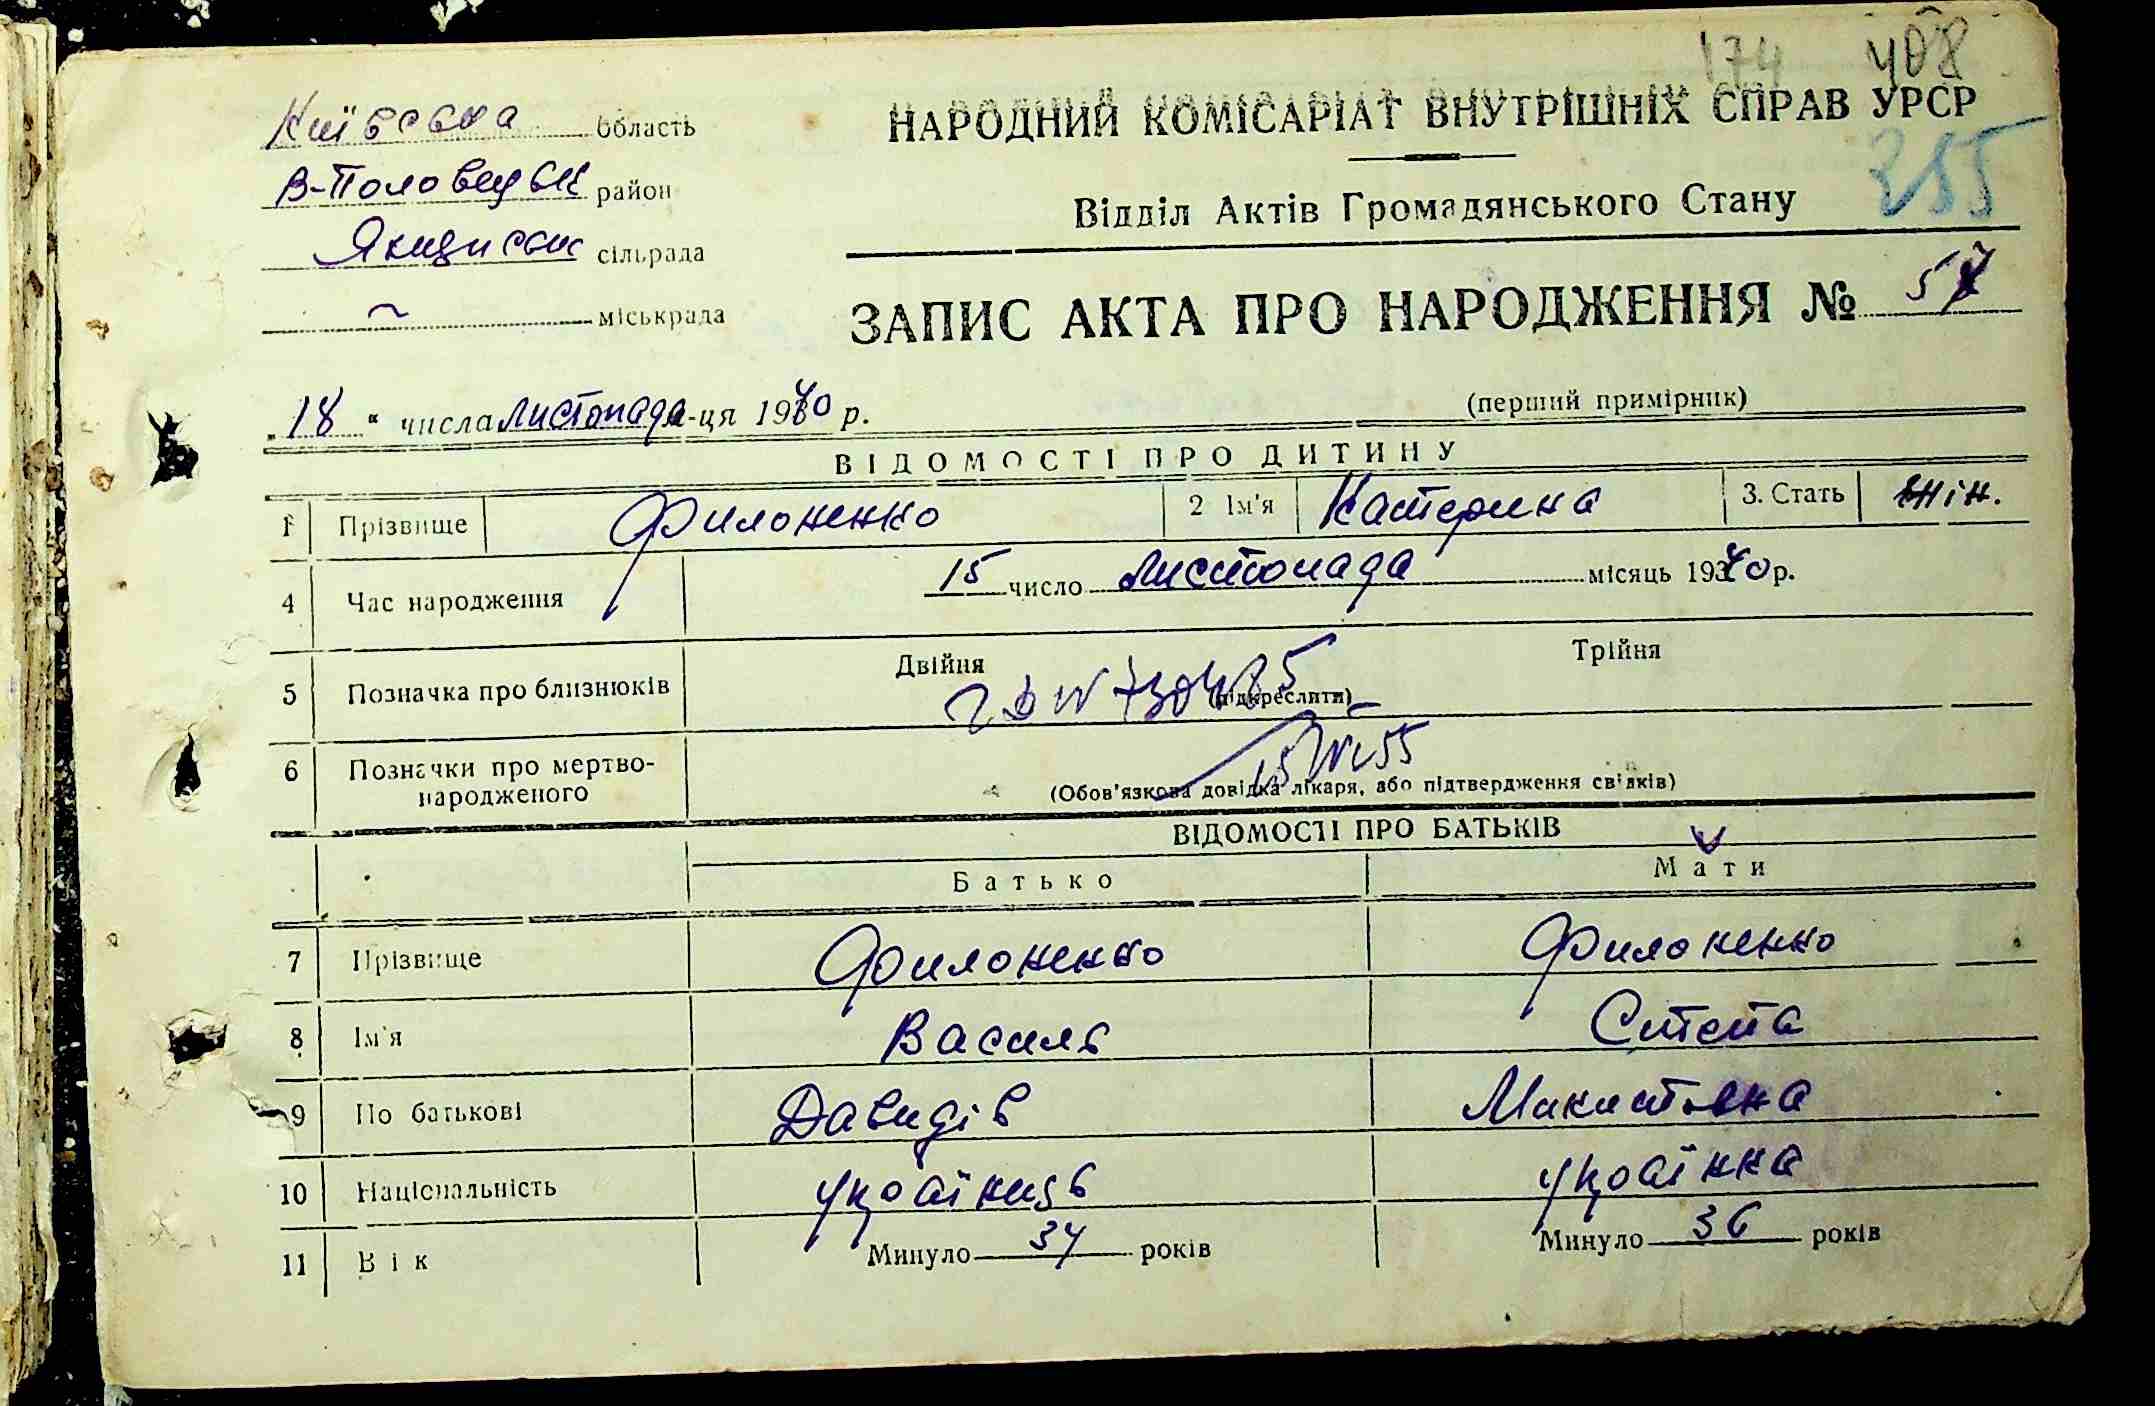 174 408
Київська область
НАРОДНИЙ КОМІСАРІАТ ВНУТРІШНІХ СПРАВ УРСР
255
В-Половецьк район
Відділ Актів Громадянського Стану
сільрада
~ міськрада
ЗАПИС АКТА ПРО НАРОДЖЕННЯ № 57
„18“ числа листопада м-ця 1940 р.
(перший примірник)
ВІДОМОСТІ ПРО ДИТИНУ
1 Прізвище Филоненко 2 Ім'я Катерина 3. Стать жін.
4 Час народження 15 число листопада місяць 1940 р.
5 Позначка про близнюків Двійня Трійня
(підкреслити)
№ 55
6 Позначки про мертво-
народженого
(Обов'язкова довідка лікаря, або підтвердження свідків)
ВІДОМОСТІ ПРО БАТЬКІВ
Батько Мати
7 Прізвище Филоненко Филоненко
8 Ім'я Василь Степа
9 По батькові Давидів Микитовна
10 Національність українець українка
11 Вік Минуло 34 років Минуло 36 років